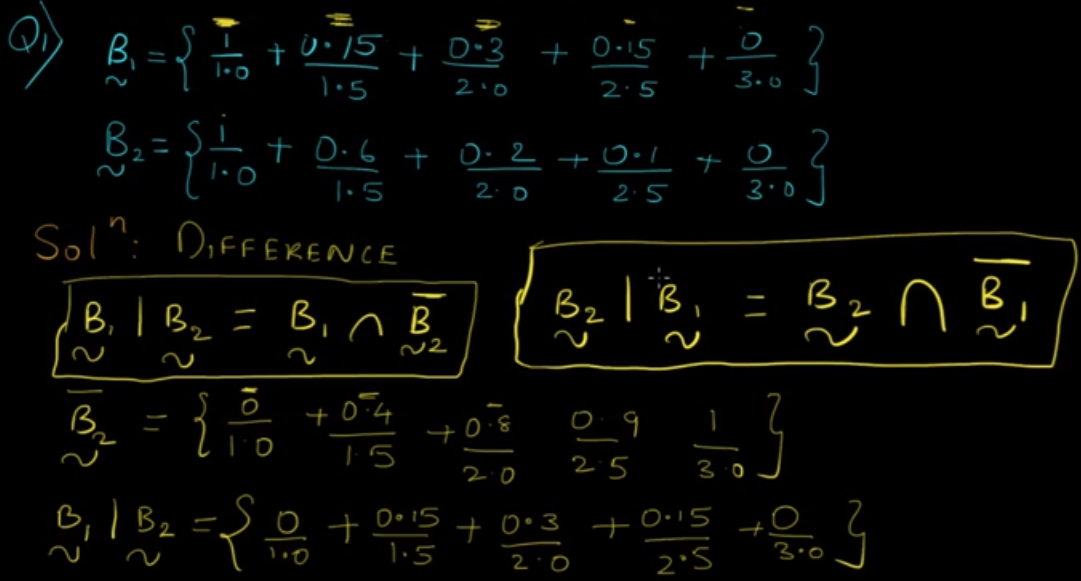 Q1) B̰₁ = { 1/1.0 + 0.15/1.5 + 0.3/2.0 + 0.15/2.5 + 0/3.0 }
B̰₂ = { 1/1.0 + 0.6/1.5 + 0.2/2.0 + 0.1/2.5 + 0/3.0 }
Solⁿ: DIFFERENCE
B̰₁ | B̰₂ = B̰₁ ∩ B̰̅₂
B̰₂ | B̰₁ = B̰₂ ∩ B̰̅₁
B̰̅₂ = { 0/1.0 + 0.4/1.5 + 0.8/2.0 0.9/2.5 1/3.0 }
B̰₁ | B̰₂ = { 0/1.0 + 0.15/1.5 + 0.3/2.0 + 0.15/2.5 + 0/3.0 }